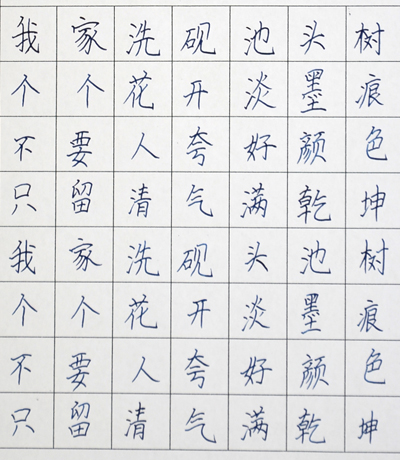 我家洗砚池头树
个个花开淡墨痕
不要人夸好颜色
只留清气满乾坤
我家洗砚头池树
个个花开淡墨痕
不要人夸好颜色
只留清气满乾坤